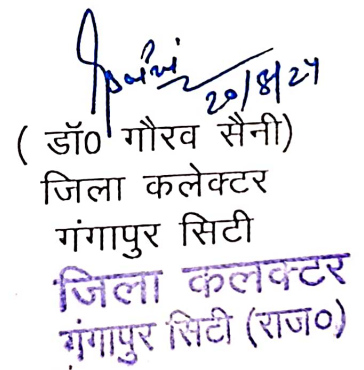 Saini
20/8/24
( डॉ0 गौरव सैनी)
जिला कलेक्टर
गंगापुर सिटी
जिला कलक्टर
गंगापुर सिटी (राज०)